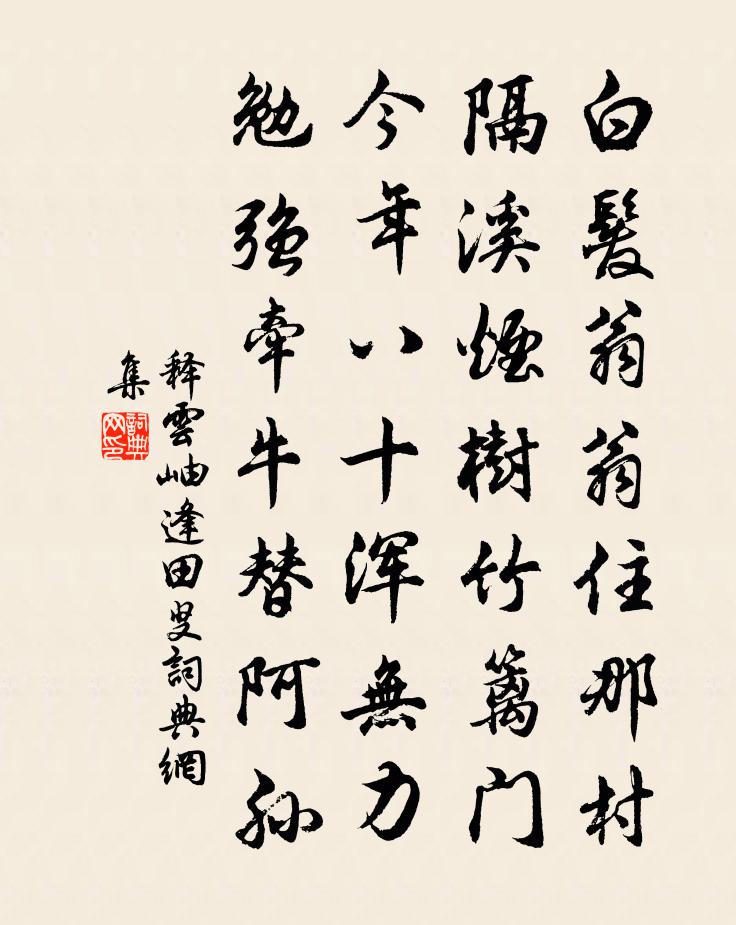 白髮翁翁住那村
隔溪煙樹竹篱门
今年八十浑無力
勉强牽牛替阿孙
释雲岫逢田叟詞典網
集
詞典
网印